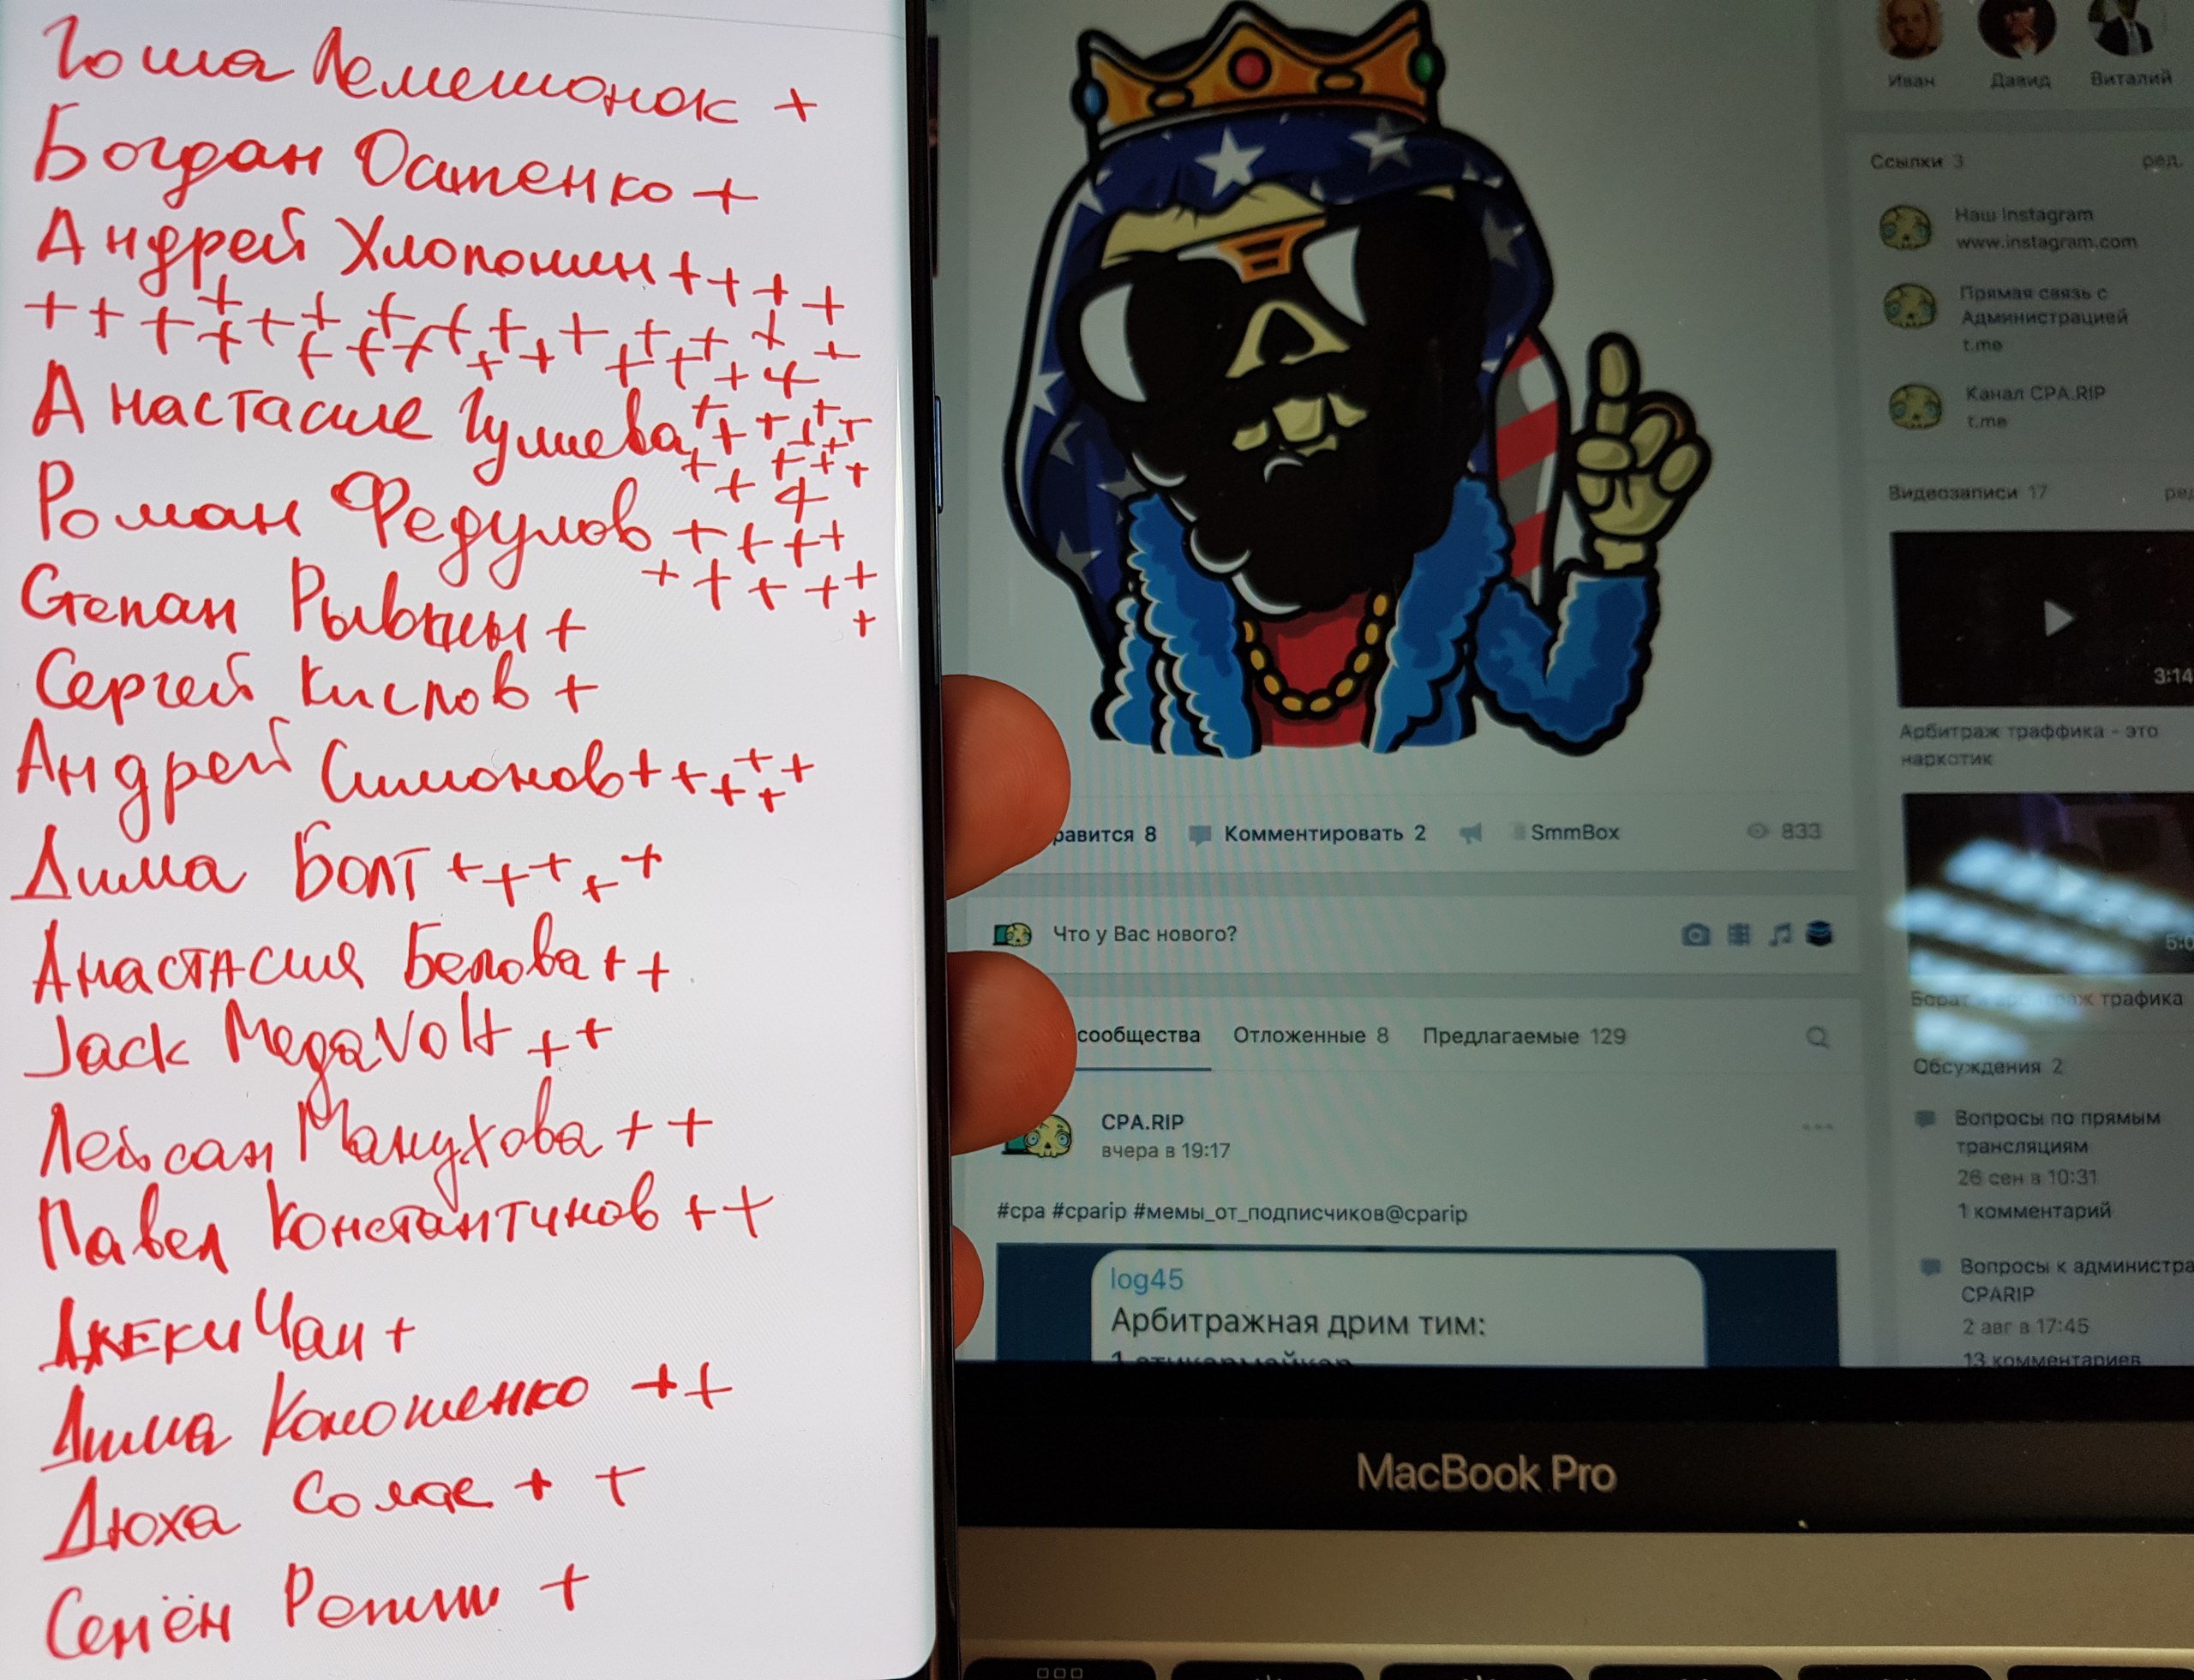 Гоша Лемешонок +
Богдан Остпенко +
Андрей Хлопонин ++++
Анастасие Гулиева
Роман Федулов ++++
Степан Рывкин +
Сергей Кислов +
Андрей Симонов ++++++
Дима Болт +++++
Анастасия Белова ++
Jack MegaVolt ++
Лейсан Манухова ++
Павел Константинов ++
Джеки Чан +
Дима Коношенко ++
Дюха Солас ++
Семён Репин +
Иван
Давид
Виталий
Ссылки 3
ред.
Наш Instagram
www.instagram.com
Прямая связь с
Администрацией
t.me
Канал CPA.RIP
t.me
Видеозаписи 17
3:14
Арбитраж траффика - это
наркотик
равится 8
Комментировать 2
SmmBox
833
Что у Вас нового?
трафика
сообщества
Отложенные 8
Предлагаемые 129
Обсуждения 2
CPA.RIP
вчера в 19:17
Вопросы по прямым
трансляциям
26 сен в 10:31
1 комментарий
#cpa #cparip #мемы_от_подписчиков@cparip
Вопросы к администра
CPARIP
2 авг в 17:45
13 комментариев
log45
Арбитражная дрим тим:
MacBook Pro